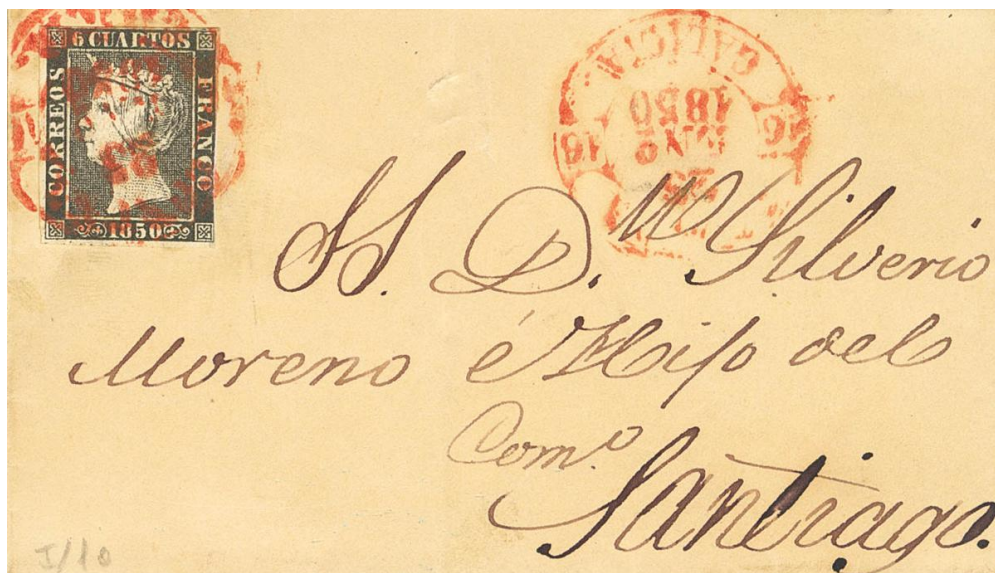 6 CUARTOS
CORREOS
FRANCO
1850
GALICIA
16 16
1850
S. D. Silverio
Moreno é Hijo del
Com.o
Santiago.
I/10